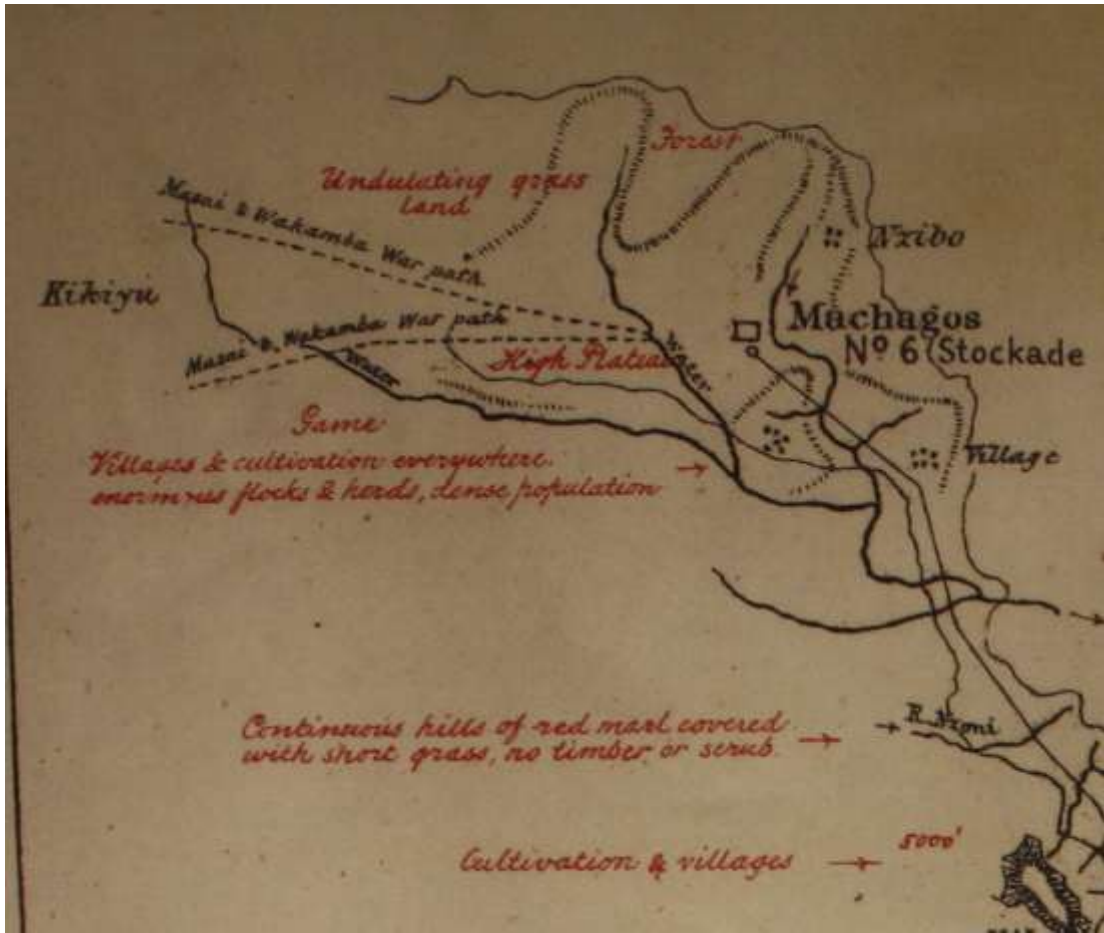 Forest
Undulating grass
land
Masai & Wakamba War path
Nzibo
Kikiyu
Machagos
Nº 6 Stockade
Masai & Wakamba War path
High Plateau
Water
Water
Game
Villages & cultivation everywhere.
enormous flocks & herds, dense population
Village
Continuous hills of red marl covered
with short grass, no timber or scrub.
R. Nzoni
5000'
Cultivation & villages